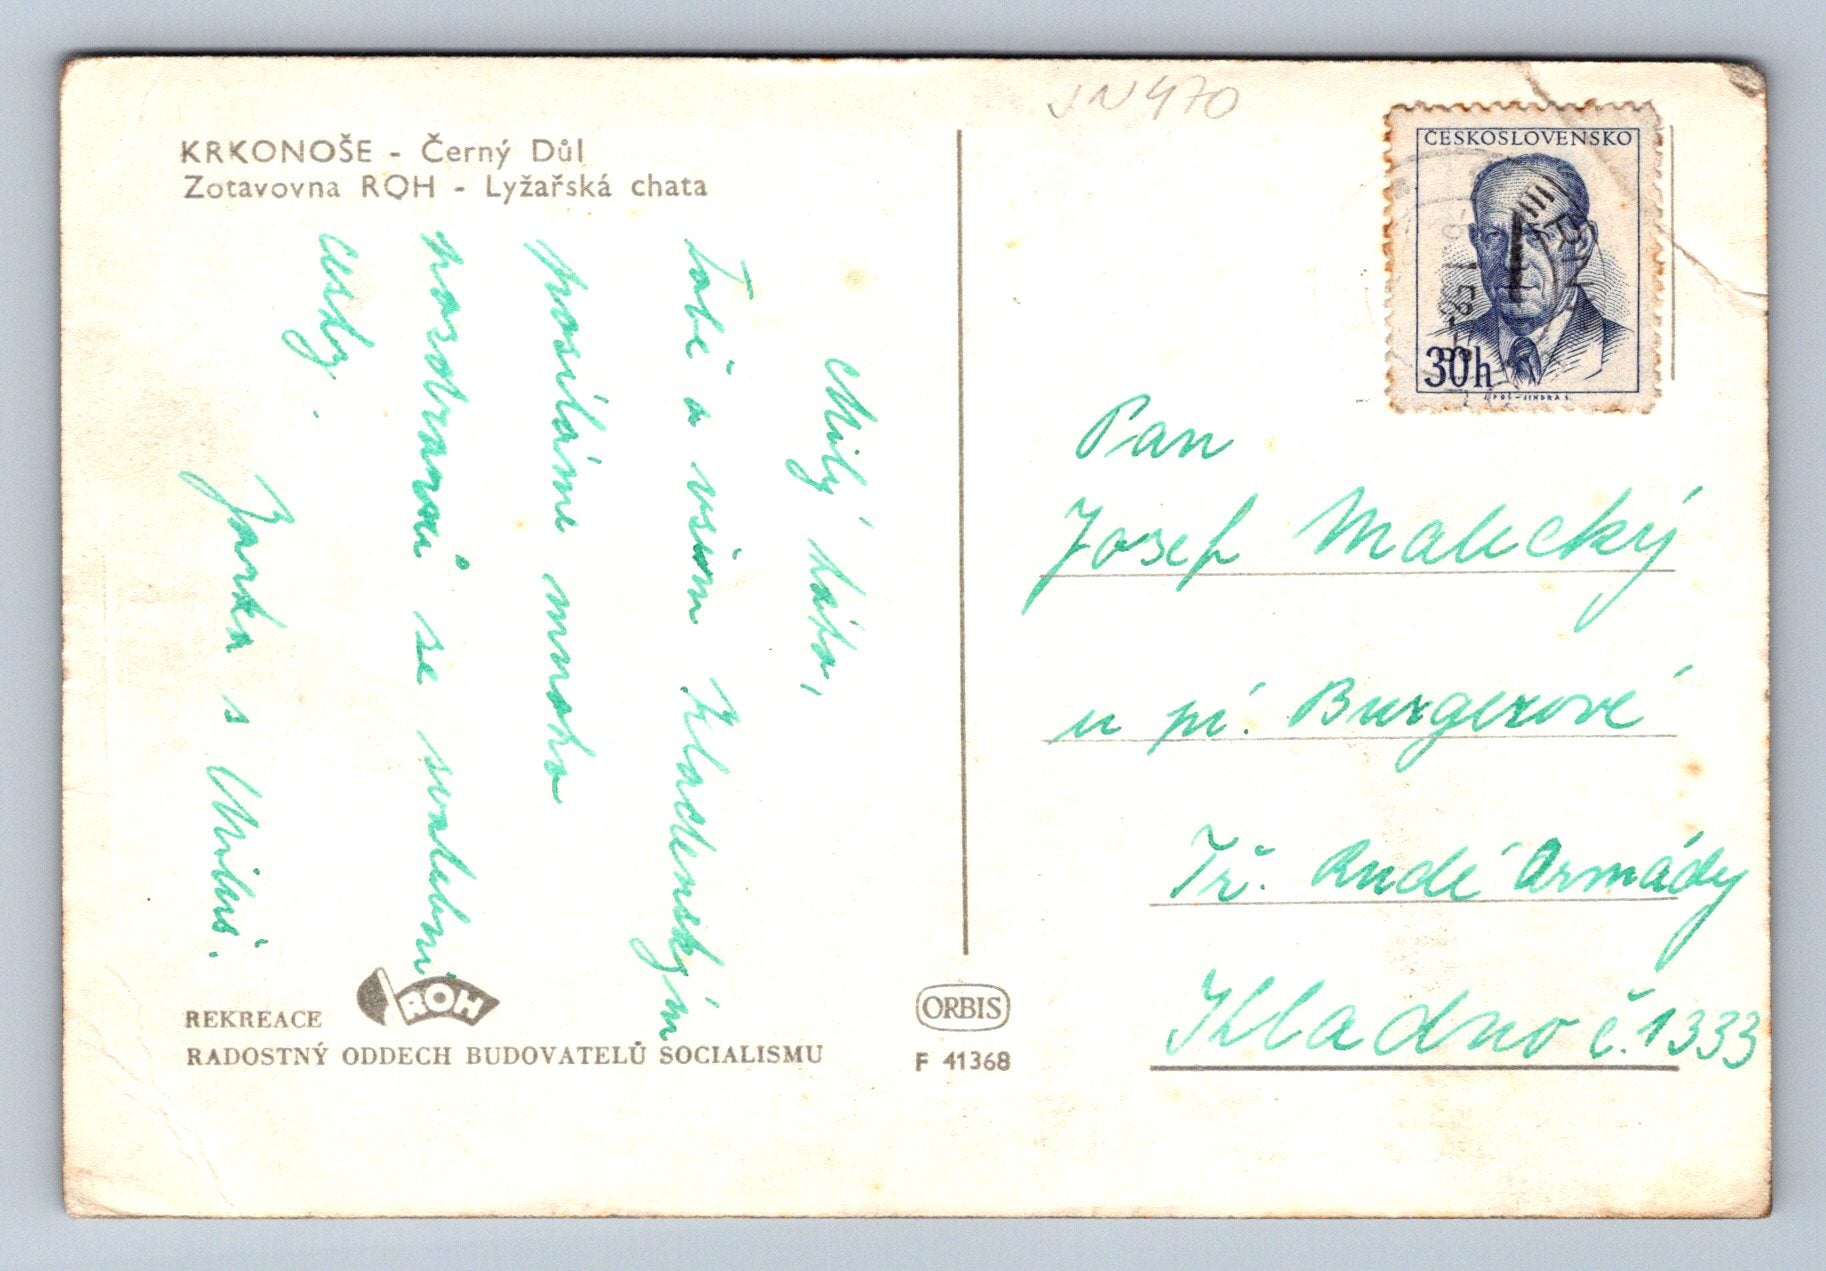 KRKONOŠE - Černý Důl
Zotavovna ROH - Lyžařská chata
Milý
Tobě a všem Kladenským
posíláme mnoho
pozdravů se svatební
cesty.
Jarka s
REKREACE ROH
RADOSTNÝ ODDECH BUDOVATELŮ SOCIALISMU
ORBIS
F 41368
JN470
ČESKOSLOVENSKO
30h
Pan
Josef Malecký
u pí. Burgerové
Tř. Rudé Armády
Kladno č. 1333